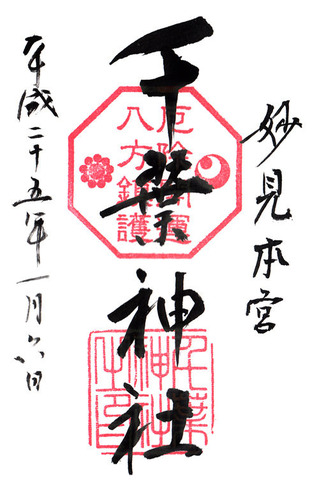 妙見本宮
千葉神社
平成二十五年一月六日
厄除開運
八方鎮護
千葉
神社
之印